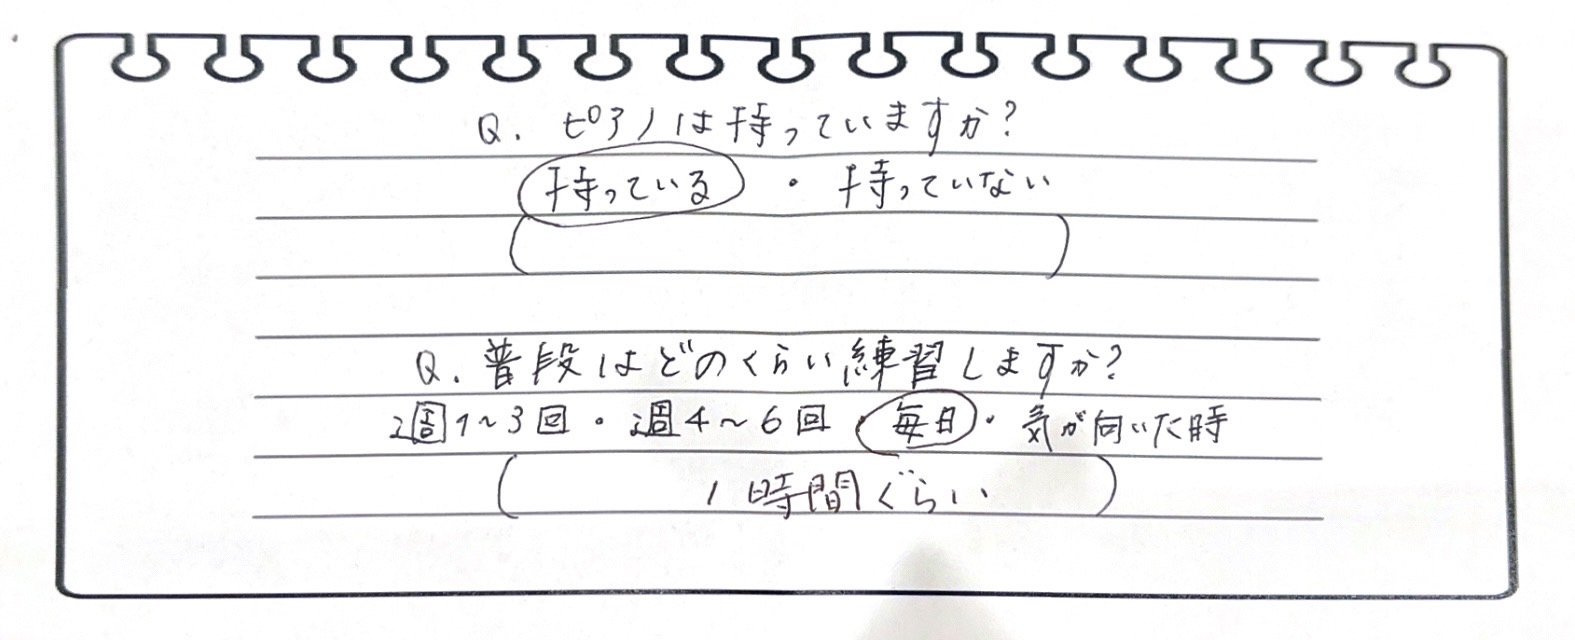 Q. ピアノは持っていますか?
持っている ・ 持っていない
( )
Q. 普段はどのくらい練習しますか?
週1～3回・週4～6回・毎日・気が向いた時
( 1時間ぐらい )